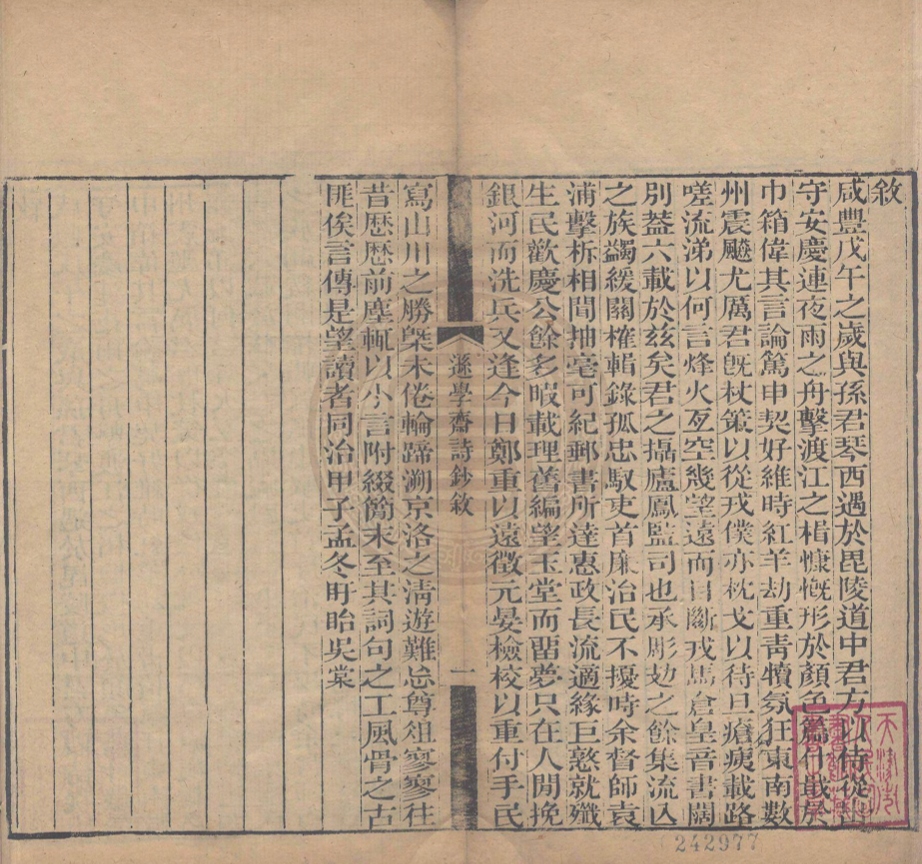 敘
咸豐戊午之歲與孫君琴西遇於毘陵道中君方以侍從出
守安慶連夜雨之舟擊渡江之楫慷慨形於顏色篇什戢於
巾箱偉其言論篤申契好維時紅羊劫重靑犢氛狂東南數
州震飈尤厲君旣杖策以從戎僕亦枕戈以待旦瘡痍載路
嗟流涕以何言烽火亙空幾望遠而目斷戎馬倉皇音書闊
別蓋六載於茲矣君之攝廬鳳監司也承彫攰之餘集流亾
之族蠲緩關榷輯錄孤忠馭吏首廉治民不擾時余督師袁
浦擊柝相聞抽毫可紀郵書所達惠政長流適緣巨憝就殲
生民歡慶公餘多暇載理舊編望玉堂而畱夢只在人閒挽
銀河而洗兵又逢今日鄭重以遠徵元晏檢校以重付手民
遜學齋詩鈔敘
一
寫山川之勝槩未倦輪蹄溯京洛之淸遊難忘尊俎寥寥往
昔歷歷前塵輒以小言附綴簡末至其詞句之工風骨之古
匪俟言傳是望讀者同治甲子孟冬盱眙吳棠
242977